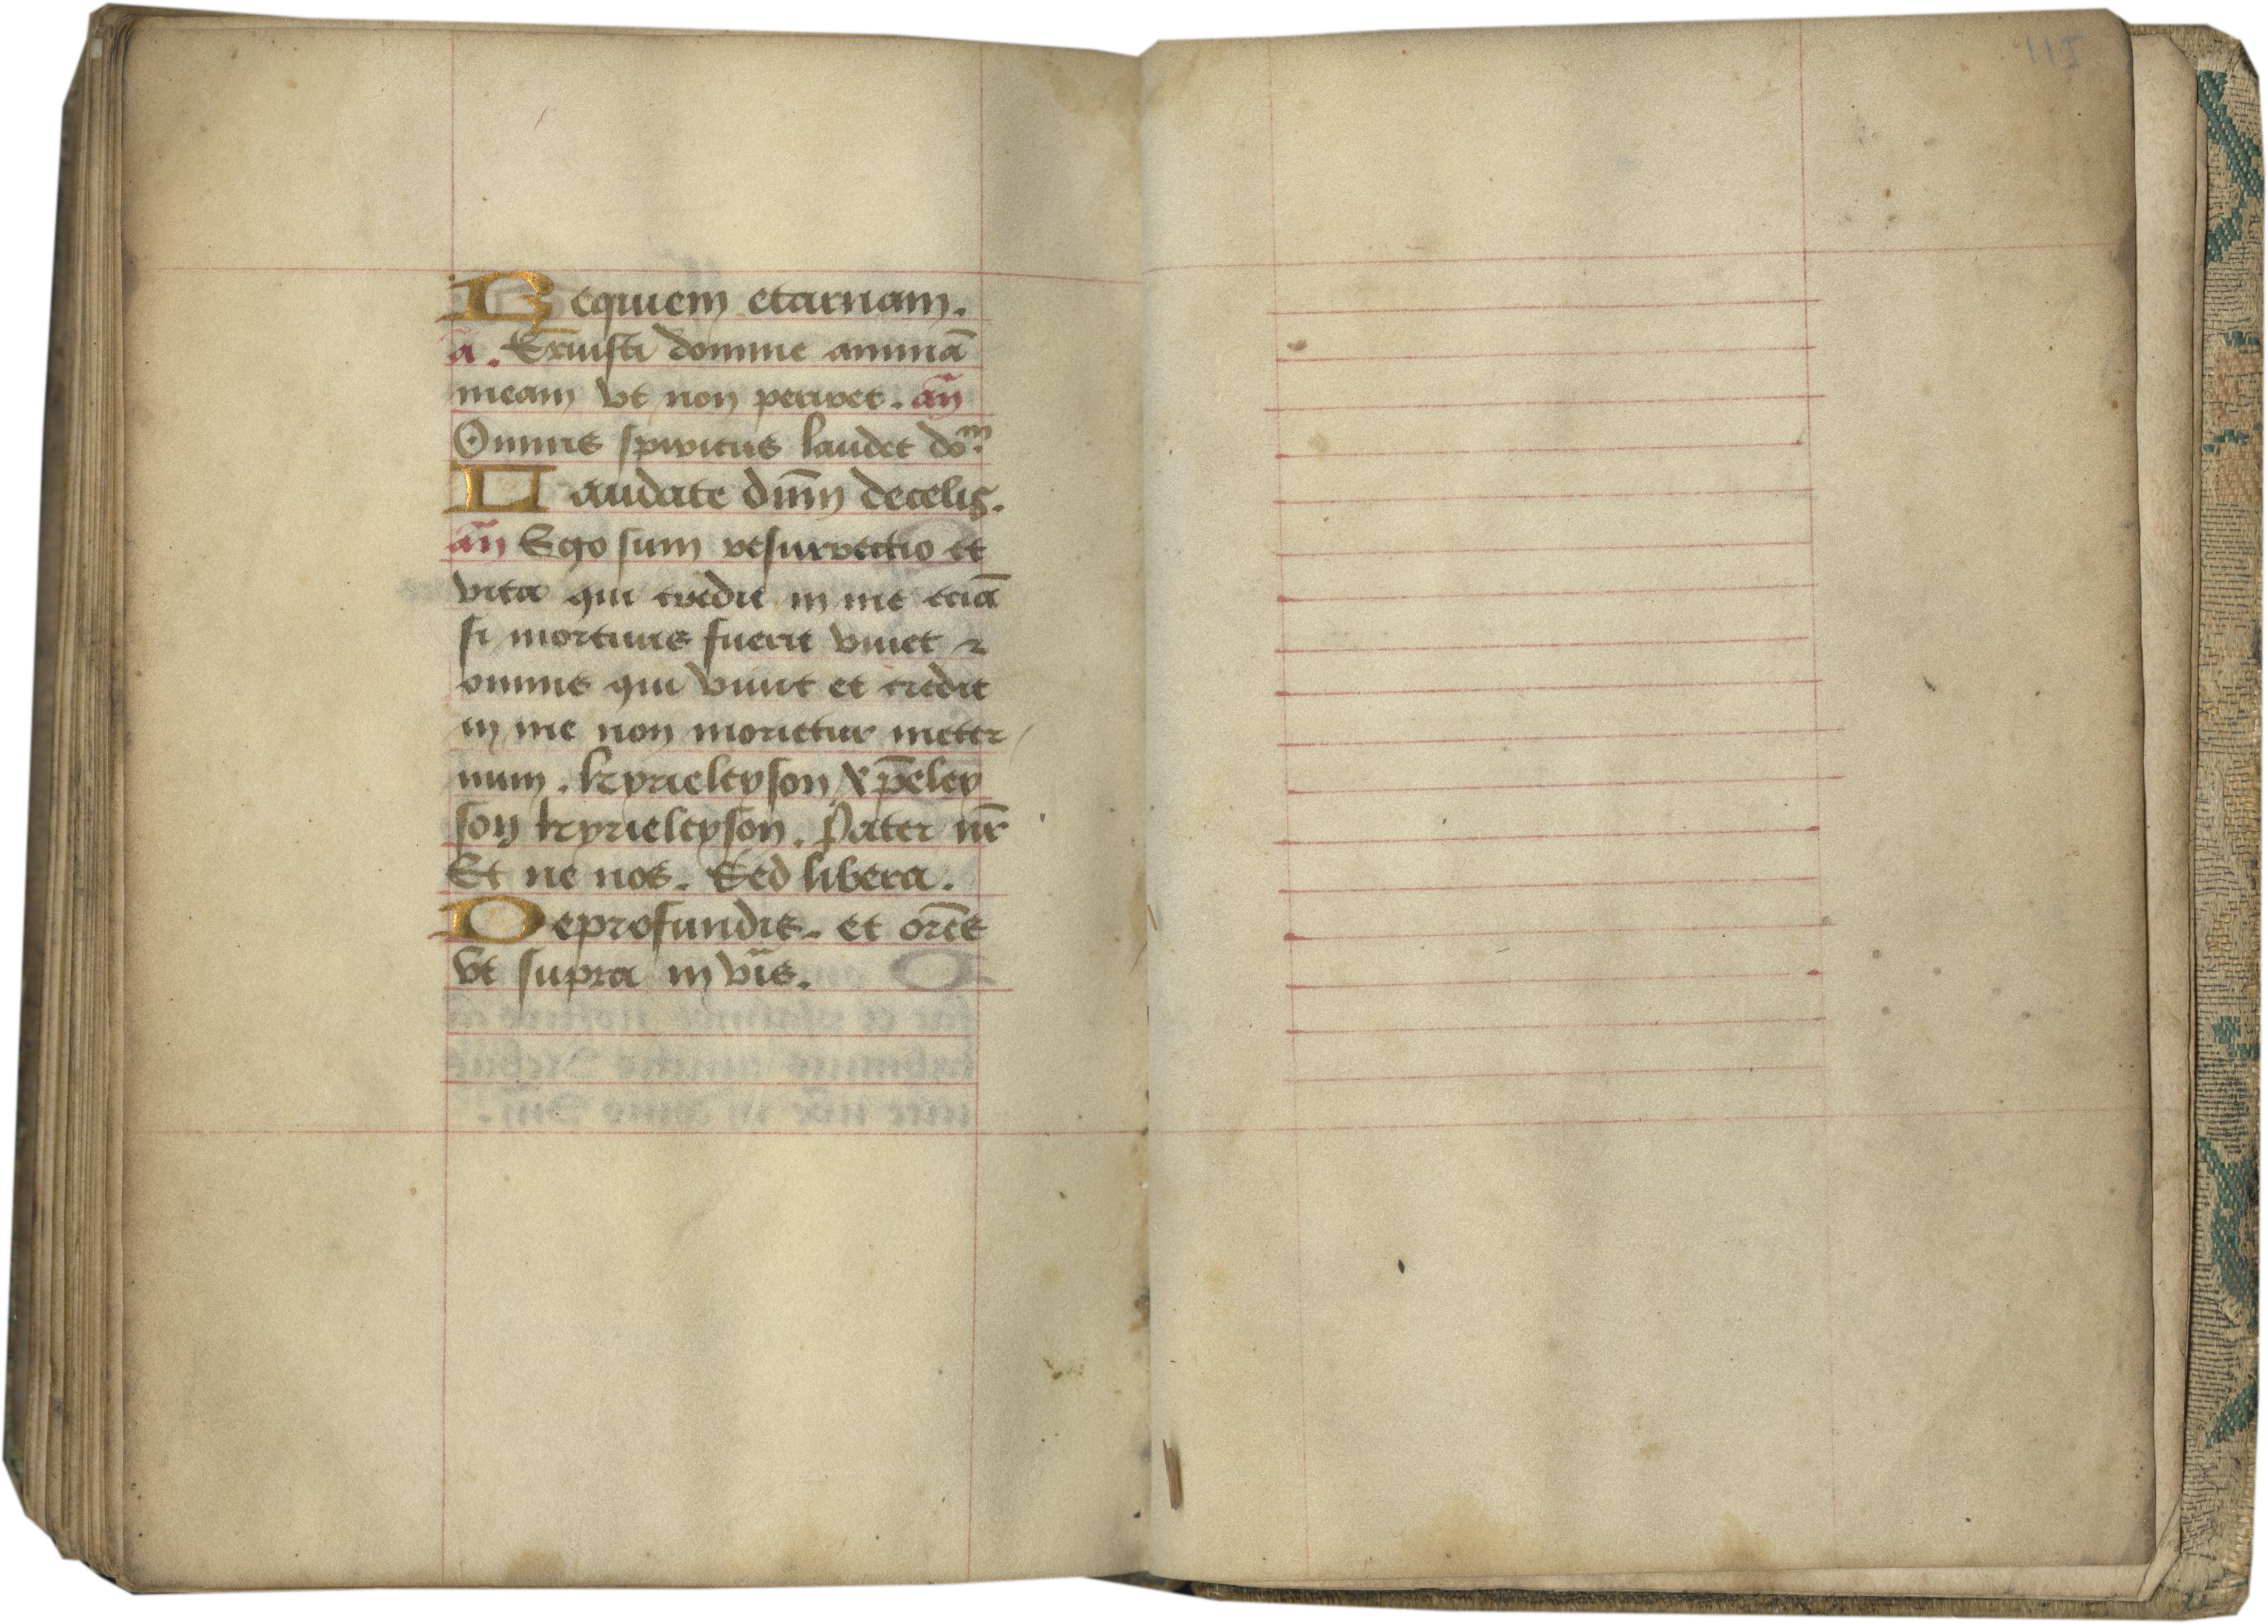 Requiem eternam.
a. Eruisti domine animā
meam vt non periret. an̄
Omnis spiritus laudet do᷒ᵐ.
Laudate dn̄m decelis.
an̄ Ego sum resurrectio et
vita qui credit in me eciā
si mortuus fuerit viuet ⁊
omnis qui viuit et credit
in me non morietur ineter
num. kyrieleyson xp̄eley
son kyrieleyson. Pater nr̄
Et ne nos. Sed libera.
Deprofundis. et orōes
vt supra in vīs.